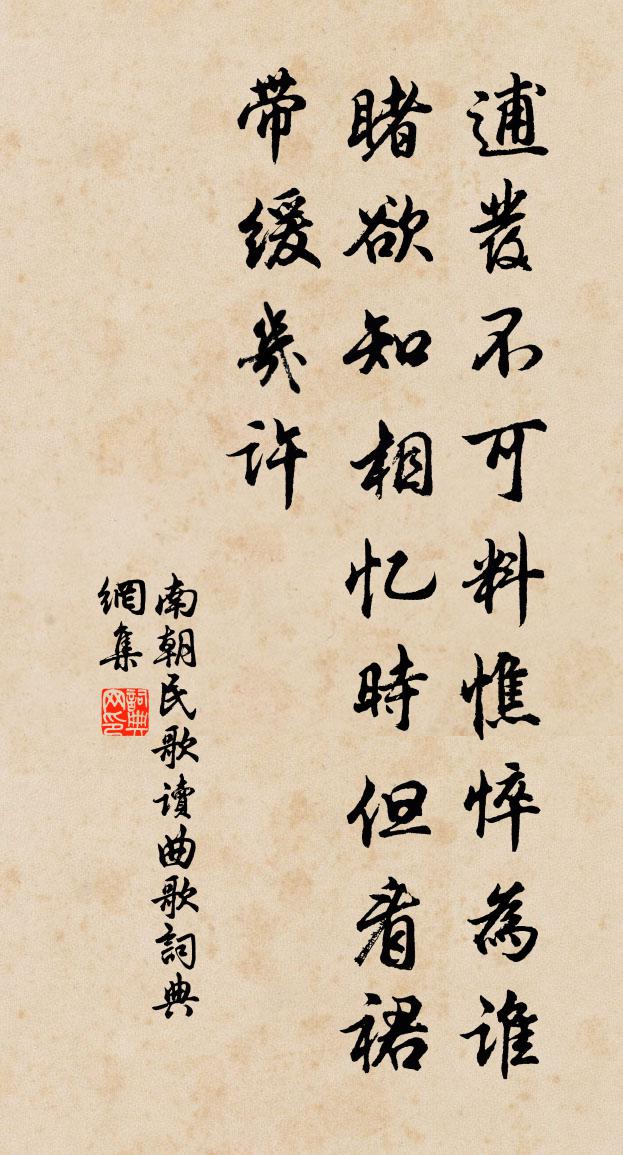 逋發不可料憔悴為谁
睹欲知相忆時但看裙
带缓幾许
南朝民歌讀曲歌詞典
網集
詞典网印